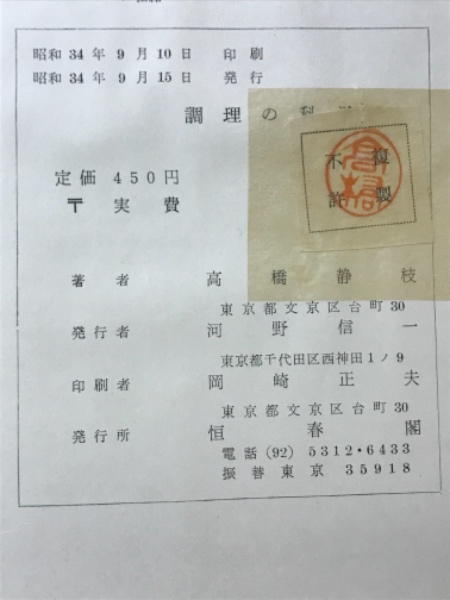 昭和34年9月10日 印刷
昭和34年9月15日 発行
調理の科
定価 450円
〒 実費
不許複製
高橋
著者 高橋静枝
東京都文京区台町30
発行者 河野信一
東京都千代田区西神田1ノ9
印刷者 岡崎正夫
東京都文京区台町30
発行所 恒春閣
電話(92) 5312・6433
振替東京 35918